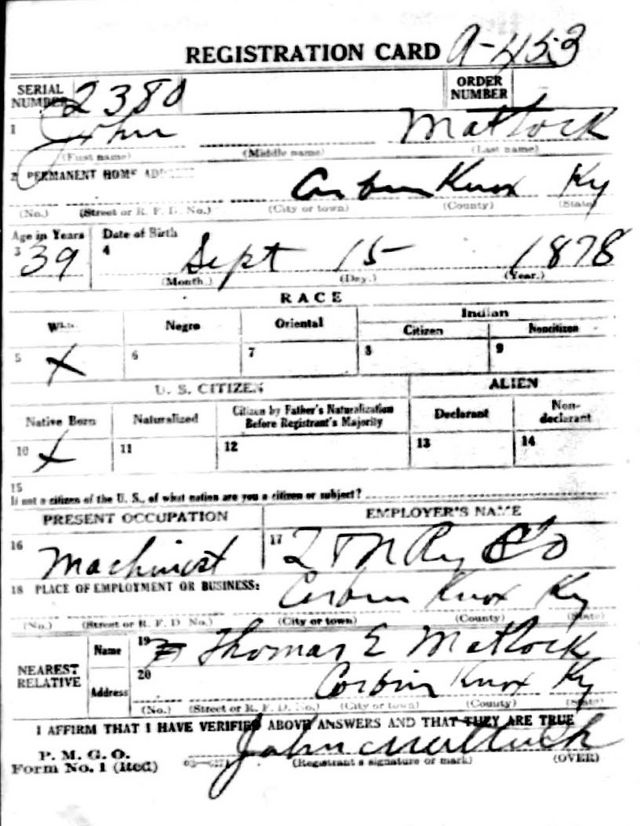 REGISTRATION CARD A-453
SERIAL NUMBER 2380 ORDER NUMBER
1 John Matlock
(First name) (Middle name) (Last name)
2 PERMANENT HOME
Corbin Knox Ky
(No.) (Street or R. F. D. No.) (City or town) (County) (State)
Age in Years Date of Birth
3 39 4 Sept 15 1878
(Month.) (Day.) (Year.)
RACE
White Negro Oriental Indian
Citizen Noncitizen
5 X 6 7 8 9
U. S. CITIZEN ALIEN
Native Born Naturalized Citizen by Father's Naturalization Before Registrant's Majority Declarant Non-declarant
10 X 11 12 13 14
15
If not a citizen of the U. S., of what nation are you a citizen or subject?
PRESENT OCCUPATION EMPLOYER'S NAME
16 Machinist 17 L & N Ry Co
18 PLACE OF EMPLOYMENT OR BUSINESS:
Corbin Knox Ky
(No.) (Street or R. F. D. No.) (City or town) (County) (State)
NEAREST RELATIVE
Name 19 Thomas E Matlock
Address 20 Corbin Knox Ky
(No.) (Street or R. F. D. No.) (City or town) (County) (State)
I AFFIRM THAT I HAVE VERIFIED ABOVE ANSWERS AND THAT THEY ARE TRUE
P. M. G. O.
Form No. 1 (Red) John Mattock
(Registrant's signature or mark) (OVER)